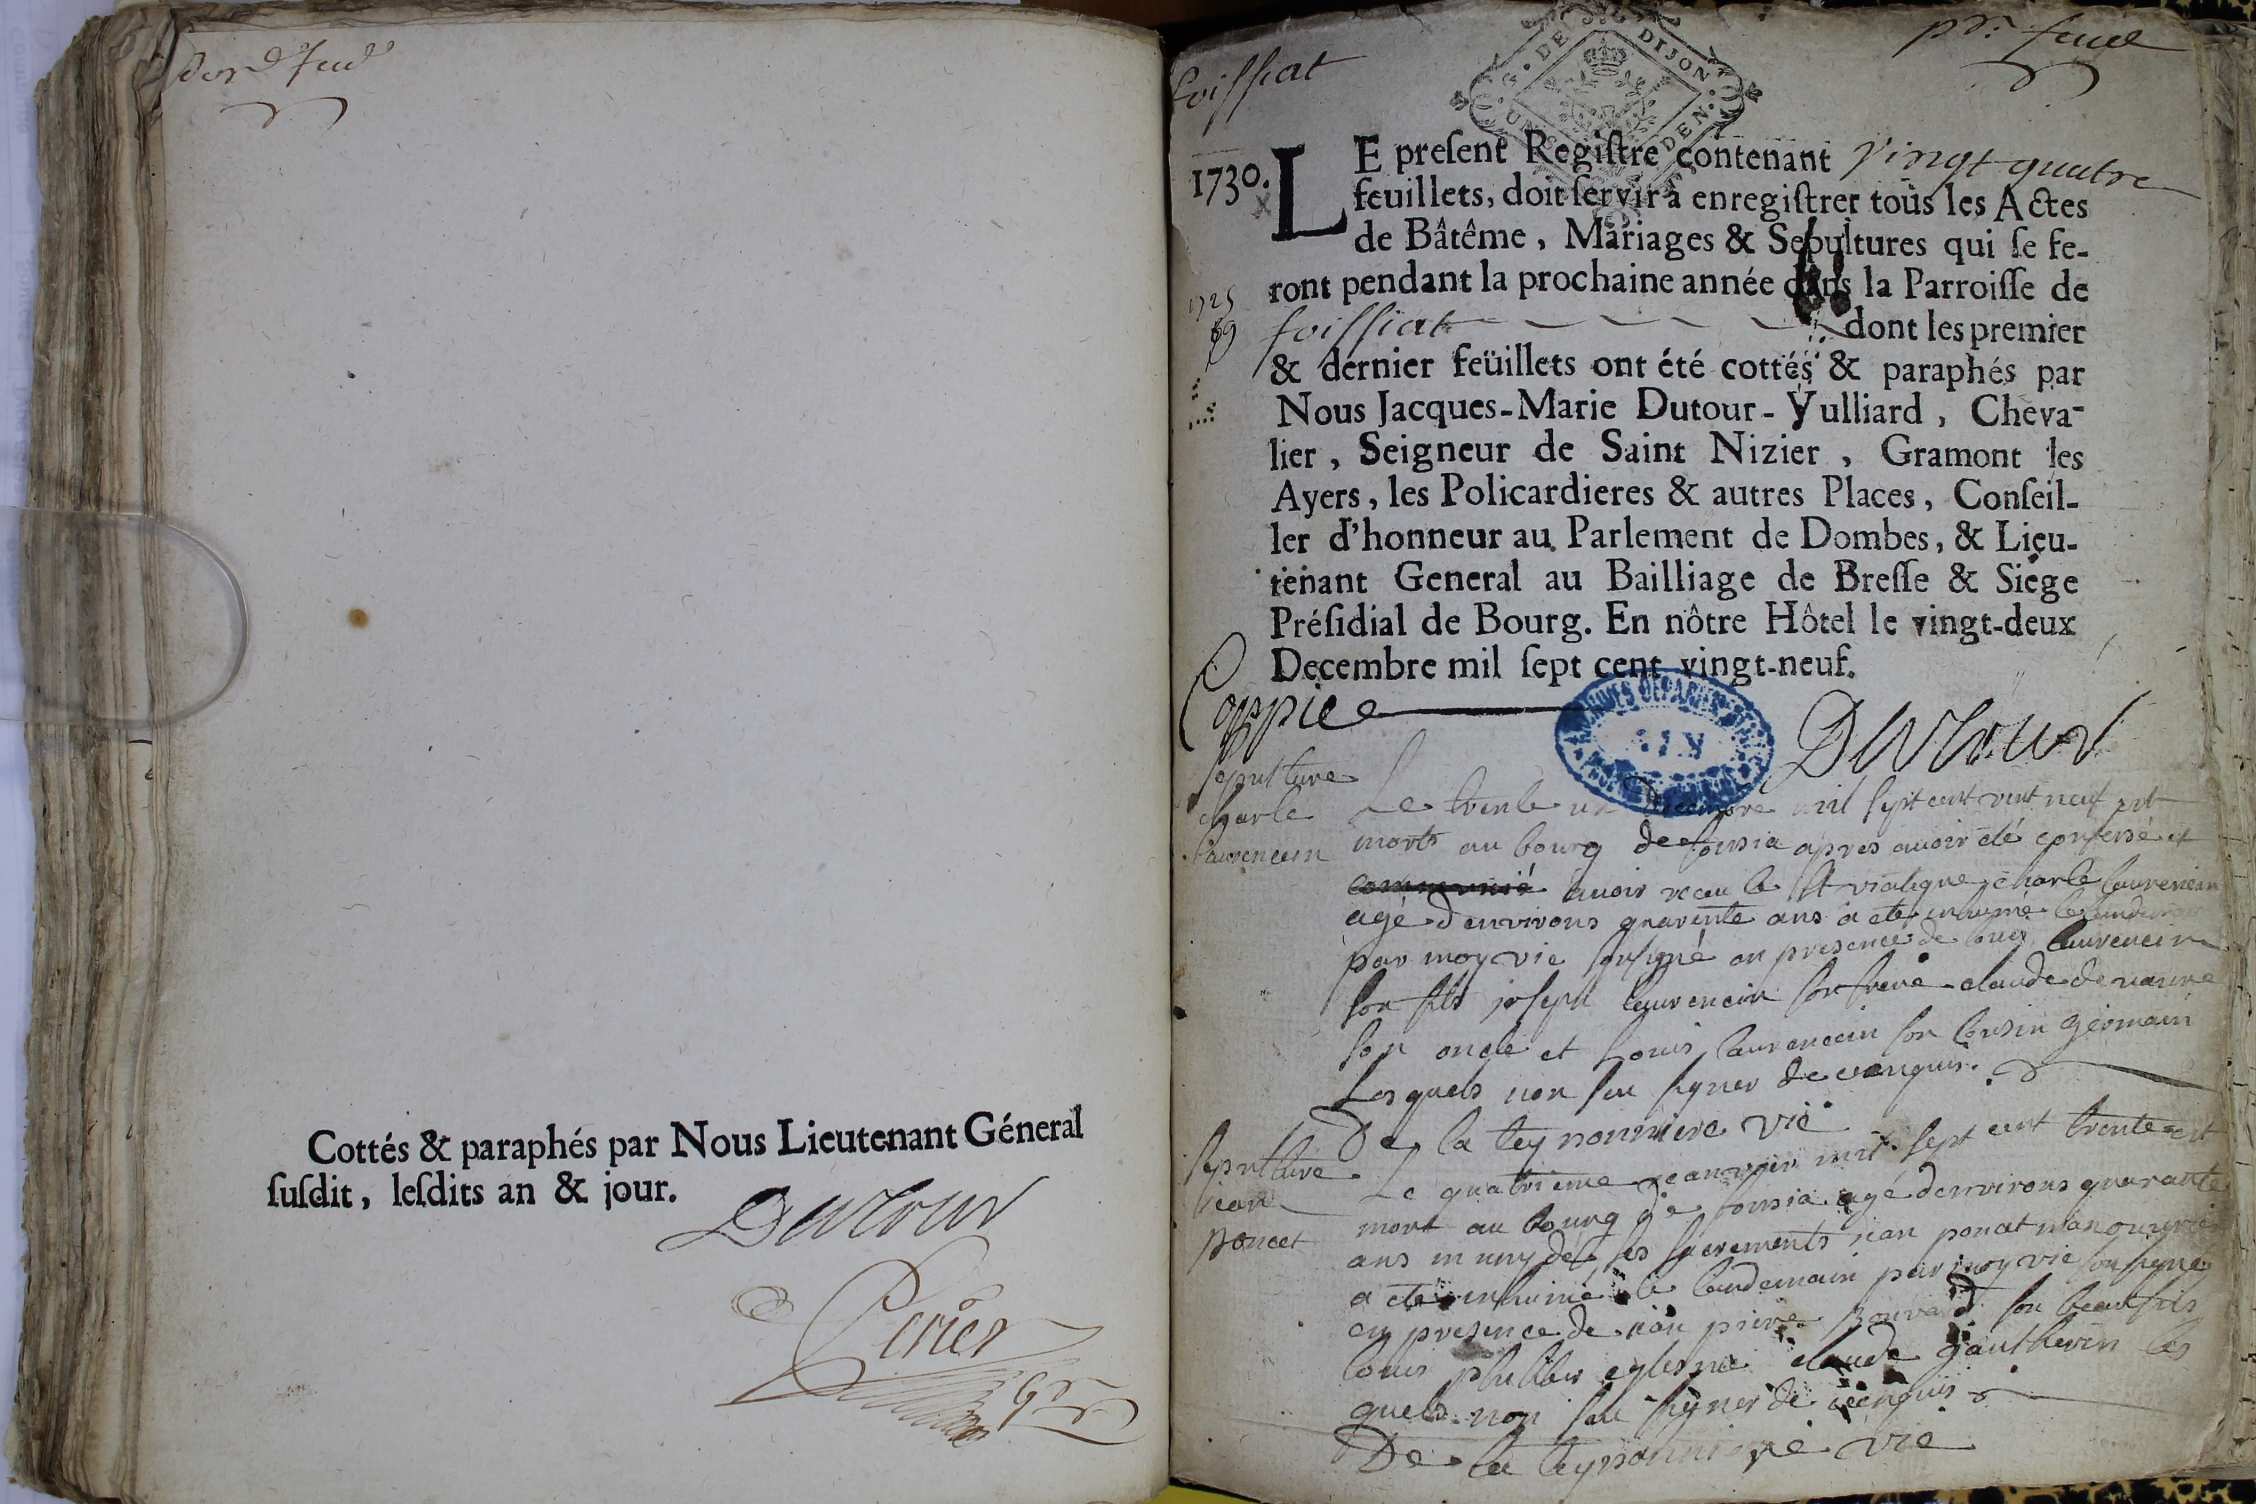 Cottés & paraphés par Nous Lieutenant Géneral
ſuſdit, leſdits an & jour.
Dutour
Perier
foiſſiat
DE DIJON
pr. feuil
1730.
LE preſent Regiſtre contenant vingt quatre
feuillets, doit ſervir à enregiſtrer tous les Actes
de Bâtême, Mariages & Sepultures qui ſe fe-
ront pendant la prochaine année dans la Parroiſſe de
foiſſiat dont les premier
& dernier feüillets ont été cottés & paraphés par
Nous Jacques-Marie Dutour-Vulliard, Cheva-
lier, Seigneur de Saint Nizier, Gramont les
Ayers, les Policardieres & autres Places, Conſeil-
ler d'honneur au Parlement de Dombes, & Lieu-
tenant General au Bailliage de Breſſe & Siége
Préſidial de Bourg. En nôtre Hôtel le vingt-deux
Decembre mil ſept cent vingt-neuf.
Coppie
Dutour
ARCHIVES DEPARTEMENTALES
AIN
sepulture
charle
laurencin
Le trente un decembre mil sept cent vint neuf est
mort au bourg de foissia apres avoir eté confessé et
communié avoir receu le st viatique charle laurencin
agé d'environs quarente ans a eté inhumé le lendemain
par moy vic sousigné en presence de laurencin
son fils joseph laurencin son frere claude
son oncle et Louis laurencin son cousin germain
Lesquels non seu signer de ce enquis.
De la teyssonniere vic
sepulture
jean
poncet
Le quatrieme jeanvier mil sept cent trente est
mort au bourg de foissia agé d'environs quarante
ans muny de ses sacrements jean poncet manouvrier
a eté inhumé le lendemain par moy vic sousigné
en presence de jean pierre bouvard son beaufils
louis claude gautherin les
quels non seu signer de ce enquis
De la teyssonniere vic